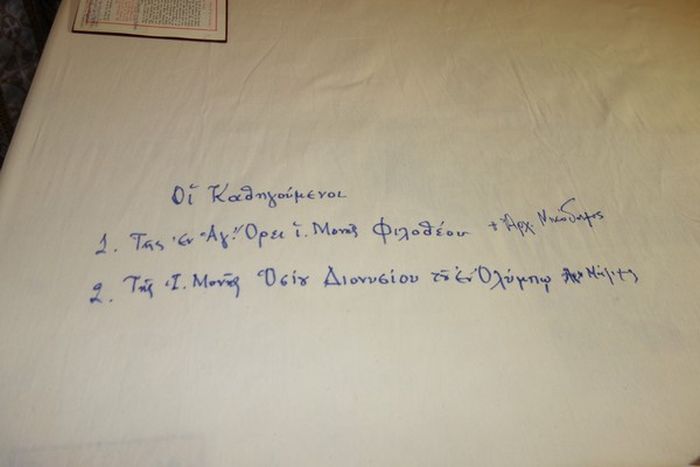 Οἵ Καθηγούμενοι
1. Τῆς ἐν Ἁγ. Ὄρει ἱ. Μονῆς Φιλοθέου + Ἀρχ. Νικόδημος
2. Τῆς Ἱ. Μονῆς Ὁσίου Διονυσίου τοῦ ἐν Ὀλύμπῳ